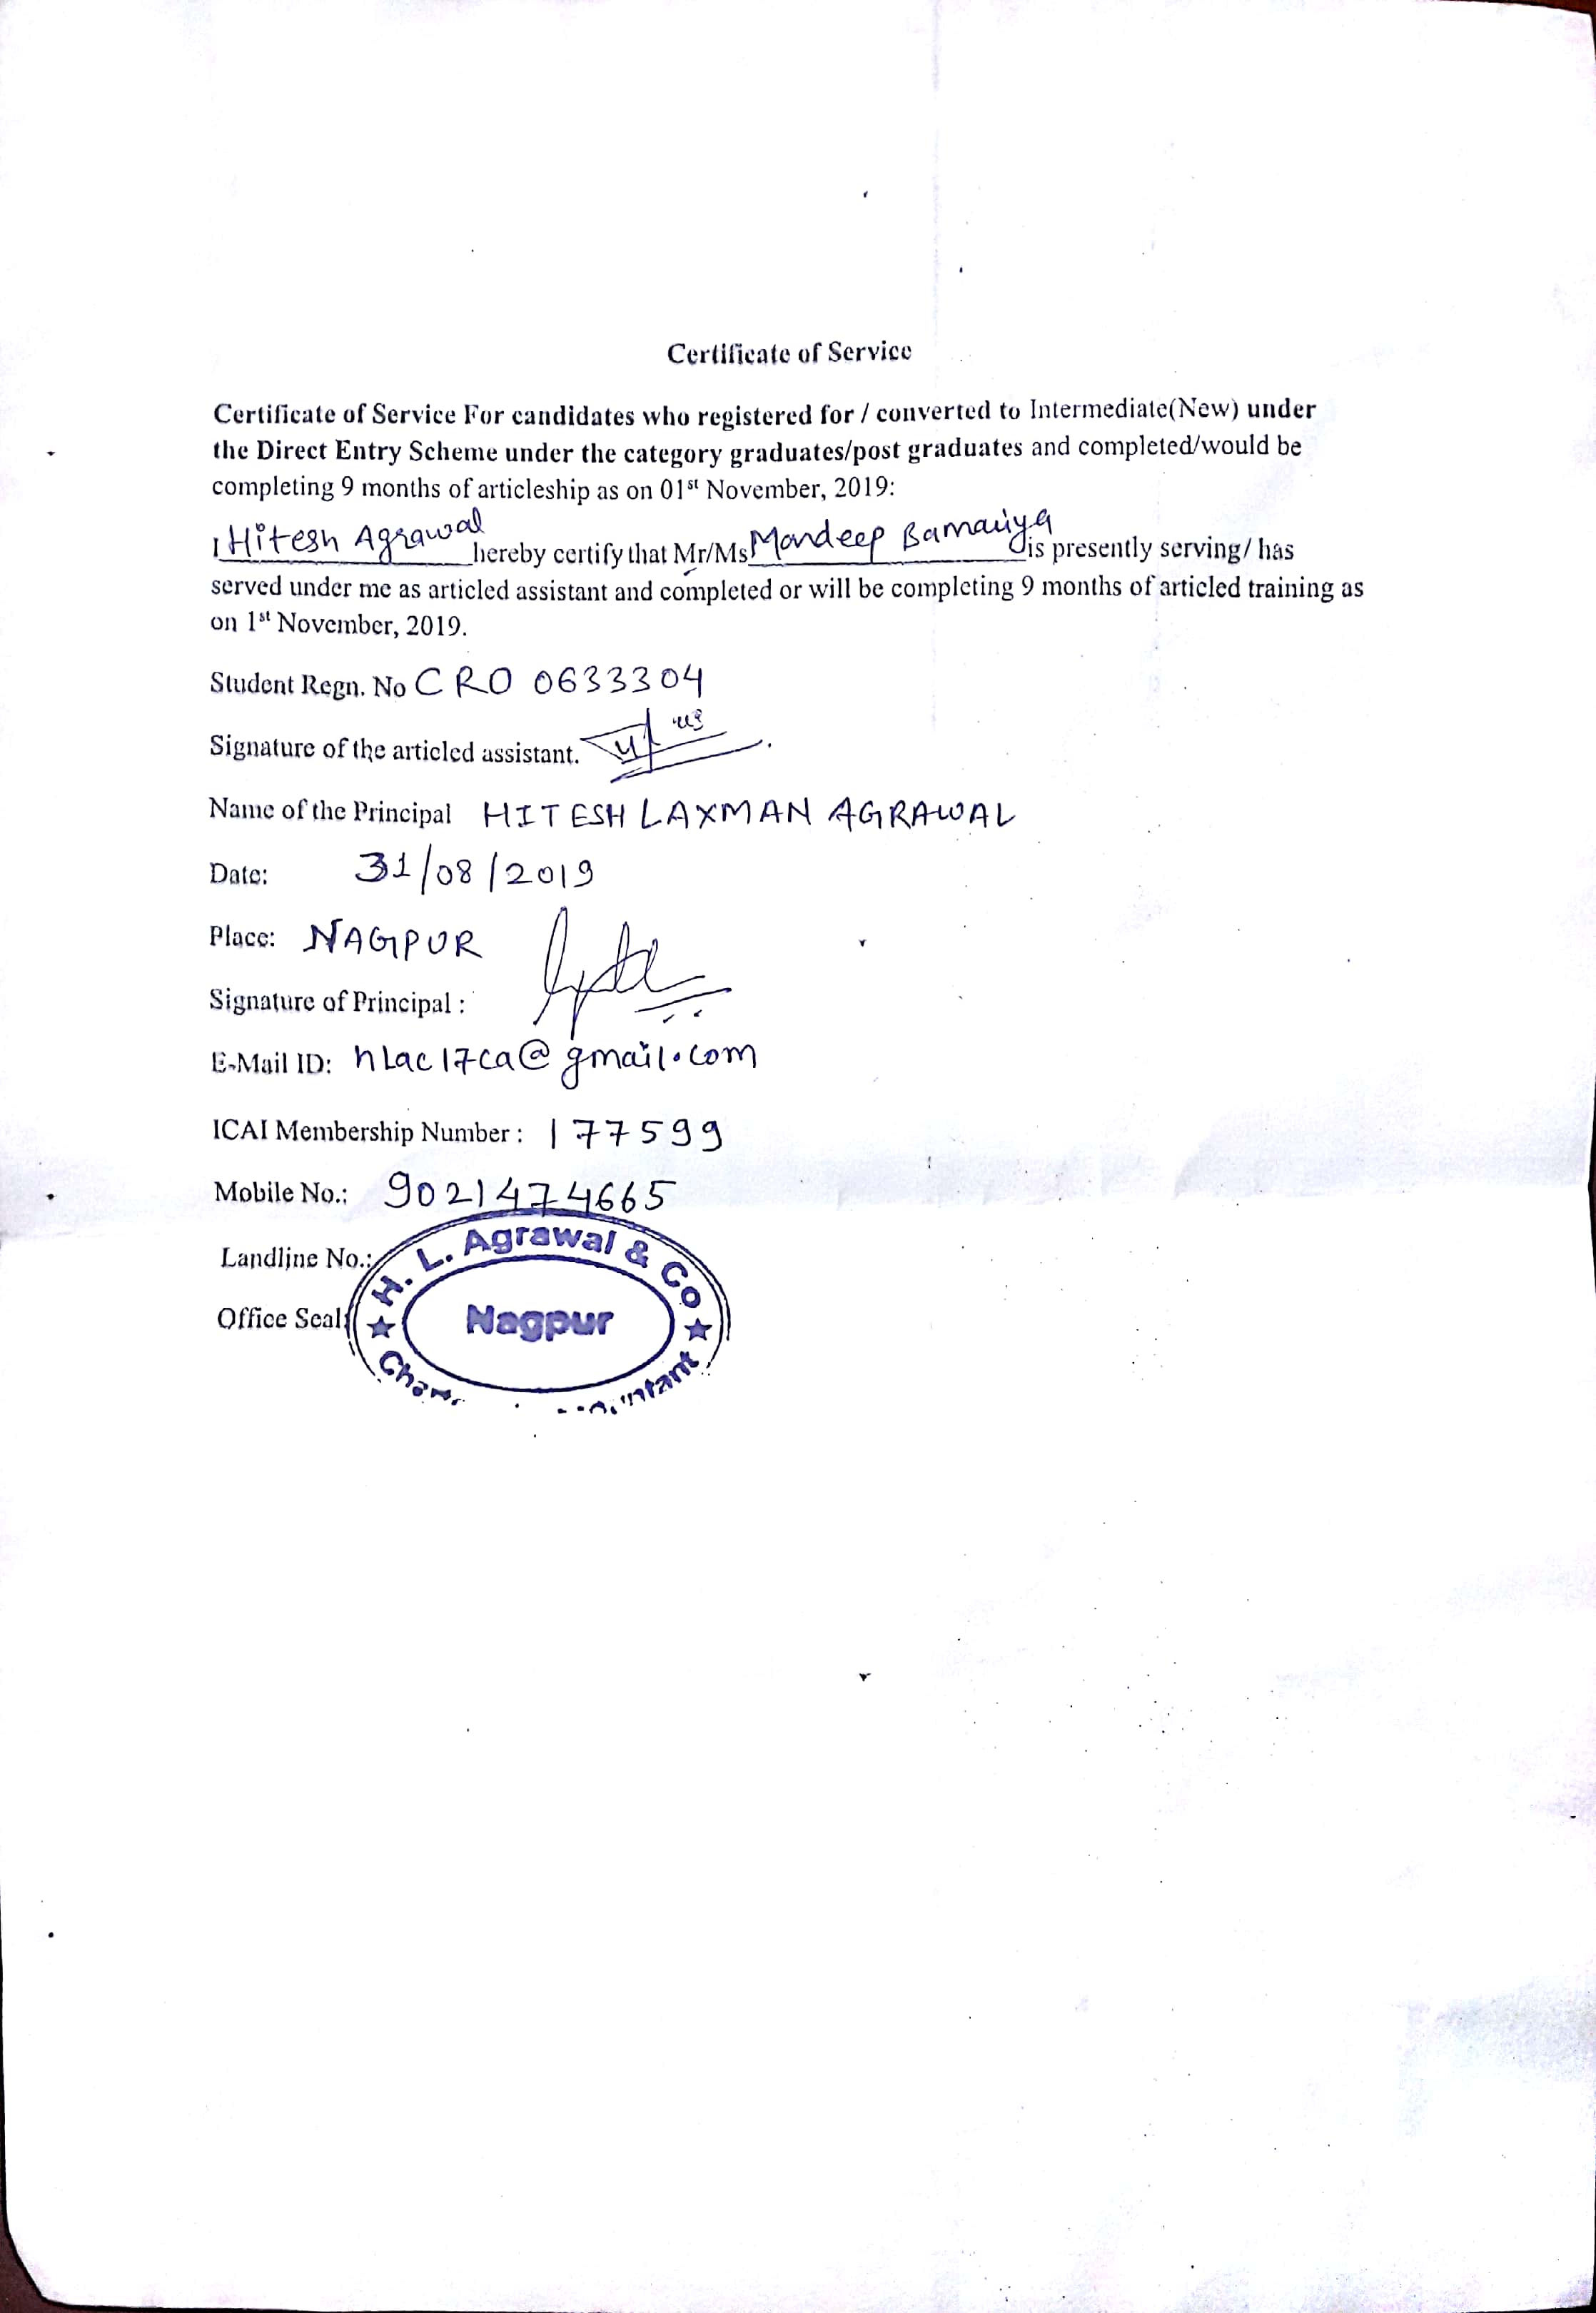 Certificate of Service
Certificate of Service For candidates who registered for / converted to Intermediate(New) under
the Direct Entry Scheme under the category graduates/post graduates and completed/would be
completing 9 months of articleship as on 01st November, 2019:
I Hitesh Agrawal hereby certify that Mr/Ms Mandeep Bamaiiya is presently serving/ has
served under me as articled assistant and completed or will be completing 9 months of articled training as
on 1st November, 2019.
Student Regn. No CRO 0633304
Signature of the articled assistant.
Name of the Principal HITESH LAXMAN AGRAWAL
Date: 31/08/2019
Place: NAGPUR
Signature of Principal :
E-Mail ID: hLac17ca@gmail.com
ICAI Membership Number : 177599
Mobile No.: 9021474665
Landline No.:
Office Seal:
H. L. Agrawal & Co
Nagpur